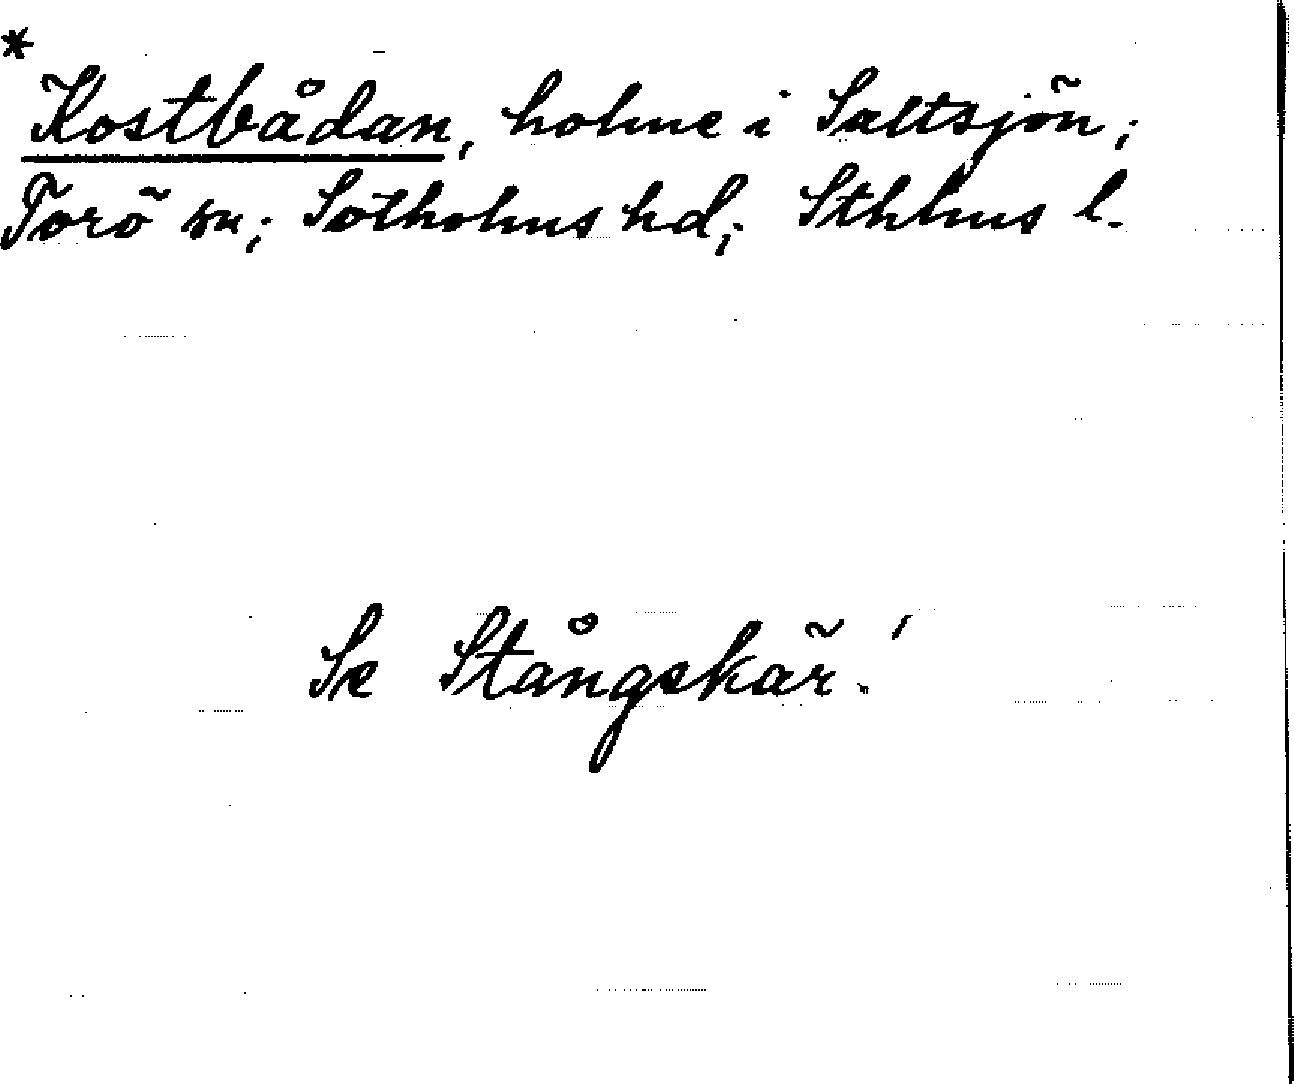 *
Kostbådan, holme i Saltsjön;
Torö sn; Sotholms hd; Sthlms l.
Se Stångskär!